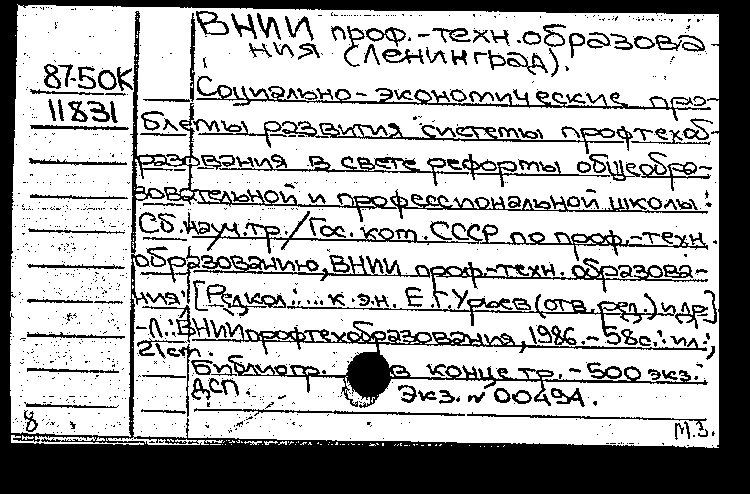 ВНИИ проф.-техн.образова-
ния (Ленинград).
87-50К
11831
Социально-экономические про-
блемы развития системы профтехоб-
разования в свете реформы общеобра-
зовательной и профессиональной школы:
Сб.науч.тр./Гос.ком.СССР по проф.-техн.
образованию, ВНИИ проф.-техн.образова-
ния; [Редкол.:...к.э.н. Е.Г.Юрьев(отв.ред.)и др.]
-Л.:ВНИИпрофтехобразования, 1986.-58с.:ил.;
21cm.
Библиогр. в конце тр.-500 экз.
ДСП. Экз.№00494.
8 М.З.